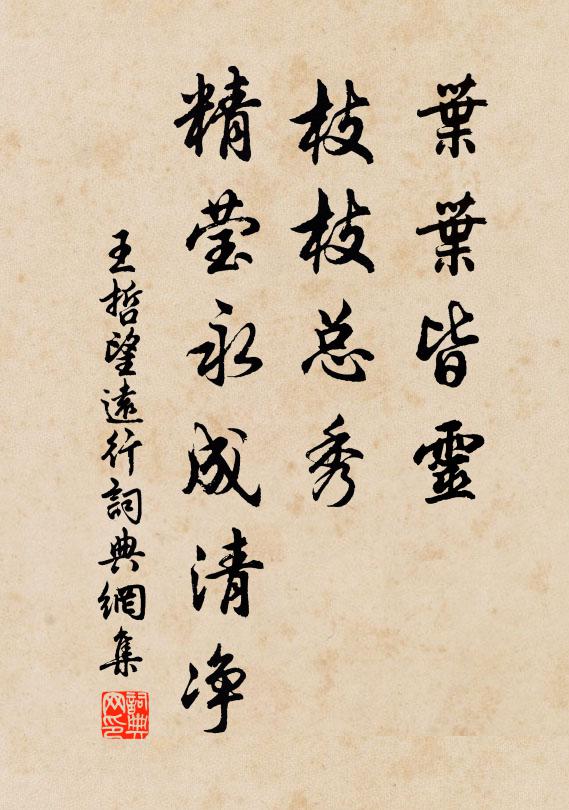 葉葉皆靈
枝枝总秀
精莹永成清净
王哲望遠行詞典網集
詞典网印